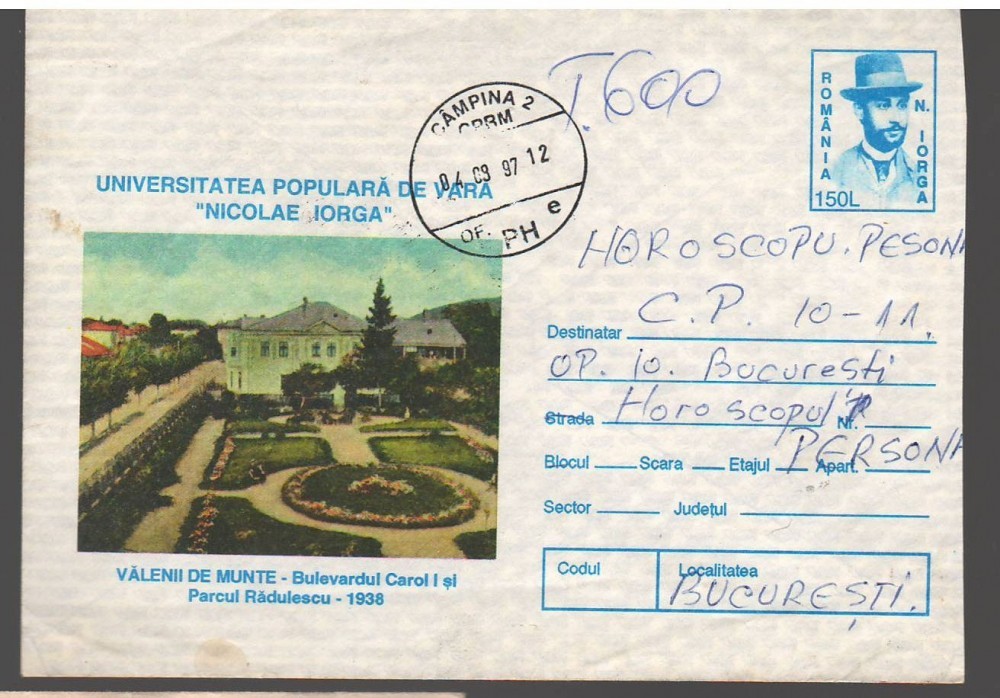 T.600
CÂMPINA 2
CPRM
04.08 97 12
e
OF. PH
ROMÂNIA
N. IORGA
150L
UNIVERSITATEA POPULARĂ DE VARĂ
"NICOLAE IORGA"
HOROSCOPU. PESONA
C.P. 10-11.
Destinatar
OP. 10. Bucuresti
Strada Horoscopul Nr.
PERSONA
Blocul Scara Etajul Apart.
Sector Județul
Codul Localitatea
BUCUREȘTI.
VĂLENII DE MUNTE - Bulevardul Carol I și
Parcul Rădulescu - 1938